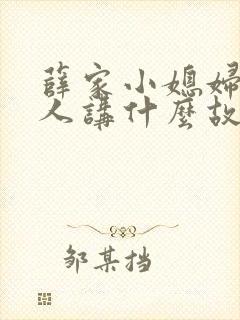 薛家小媳婦
人講什麼故
邹某挡